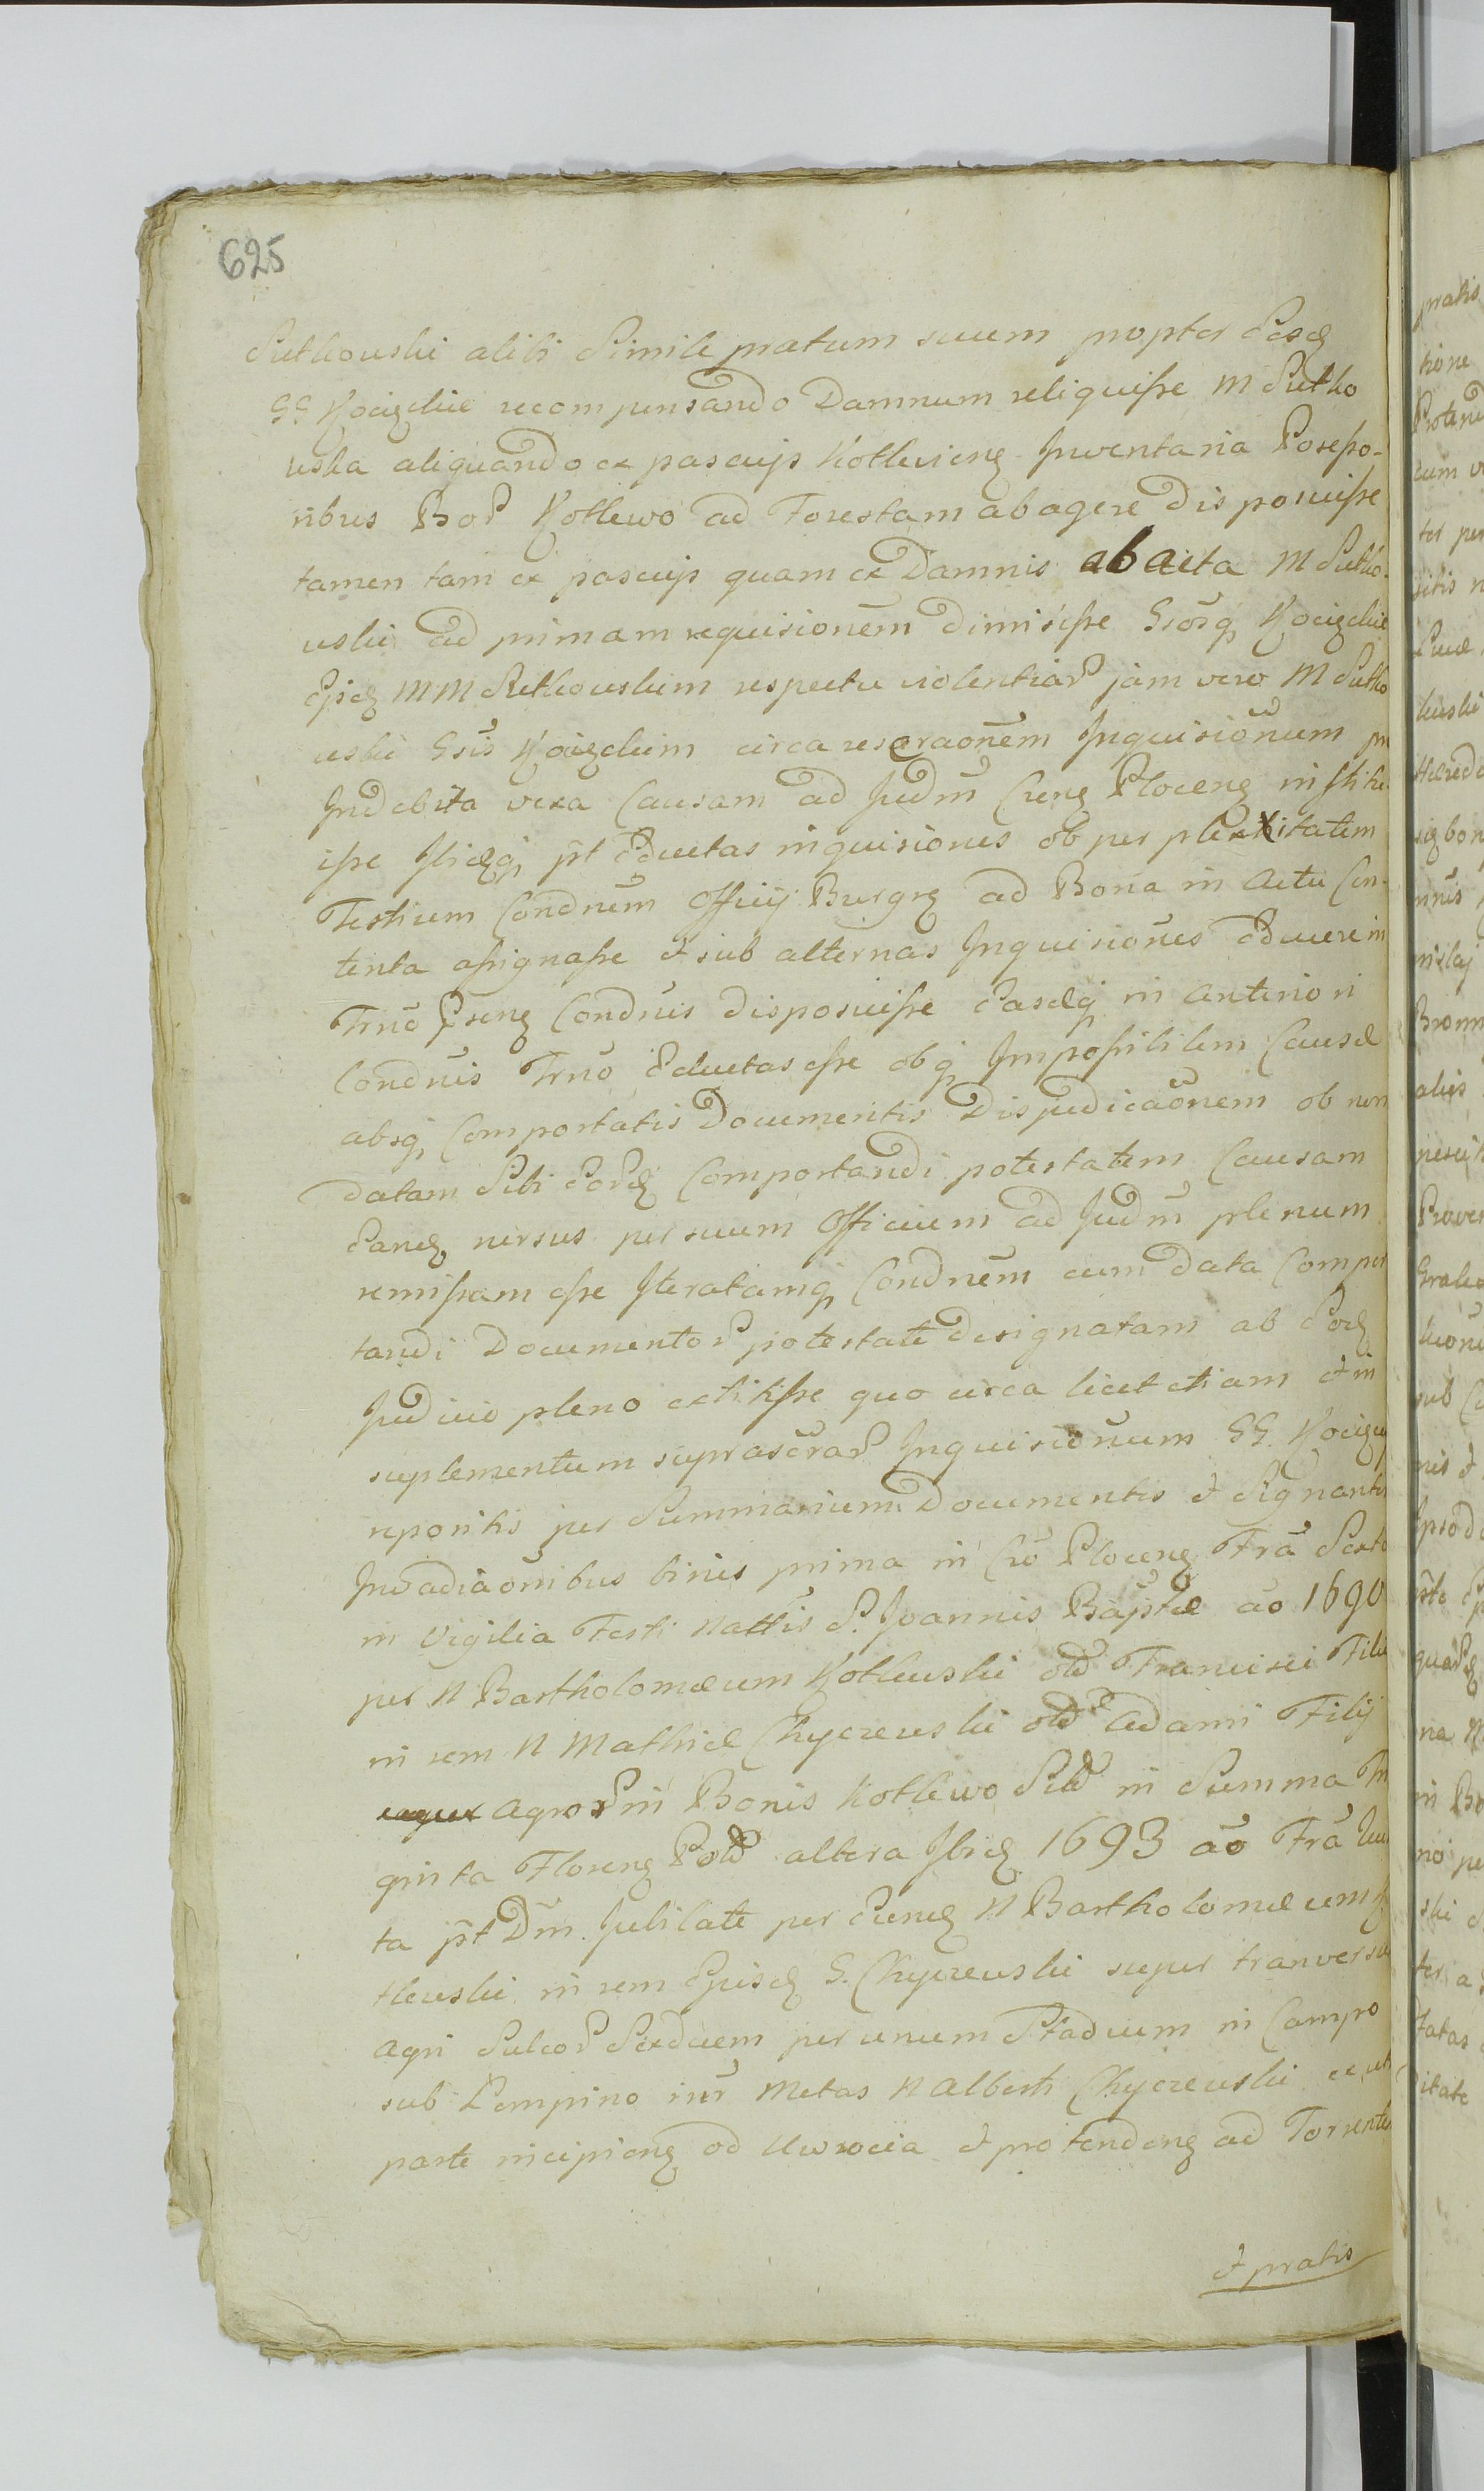 625
Sutkowski alibi Simile pratum suum propter Eosd
GG Kocięckie recompensando Damnum reliquisse M Sutko
wska aliquando ex pascuis Kotlewieng Inventaria Posesso-
ribus Bor Kotlewo ad Forestam abagere disposuisse
tamen tam ex pascuis quam ex Damnis abacta M Sutko-
wski ad primam requisionem dimisisse Gsorq Kocięckie
Ejsd MM Sutkowskim respectu violentiar jam vero M Sutko
wski Gsis Kocięckim circa reseraonem Inquisionum
Indebita vexa Causam ad Judm Creng Ploceng institu-
isse Ibidqj pt Eductas inquisiones ob perplexXitatem
Testium Condnem Officij Burgrg ad Bona in Actu Con-
tenta assignasse et sub alternas Inquisiones Educere in
Trno Prseng Condnis disposuisse Easdqj in Anteriori
Condnis Trno Eductas esse obqj Impossibilem Causæ
absqj Comportatis Documentis Disjudicaonem ob non
datam Sibi Eord Comportandi potestatem Causam
Eand rursus per suum Officium ad Judm plenum
remissam esse Iteratamqj Condnem cum data Compor
tandi Documentor potestate designatam ab Eod
Judicio pleno extitisse quo circa licet etiam et in
suplementum suprascrar Inquisionum GG. Kocięcy
repositis per Summarium Documentis et Signanter
Invadiaonibus binis prima in Cro Ploceng Fra Sexta
in Vigilia Festi Nattis S. Joannis Baptæ ao 1690
per N Bartholomæum Kotlewski old Francisci Filiu
in rem N Mathiæ Chyczewski old Adami Filij
Agror in Bonis Kotlewo Sitt in Summa Tri
ginta Floreng Pold altera Ibid 1693 ao Fra
ta pt Dm. Jubilate per Eund N Bartholomæum
tlewski in rem Ejusd G. Chyczewski super tranversu
Agri Sulcor Sexdcem per unum Stadium in Campo
sub Lempino intr Metas N Alberti Chyczewski ex
parte incipieng od Uwrocia et protendeng ad Torrente
et pratis